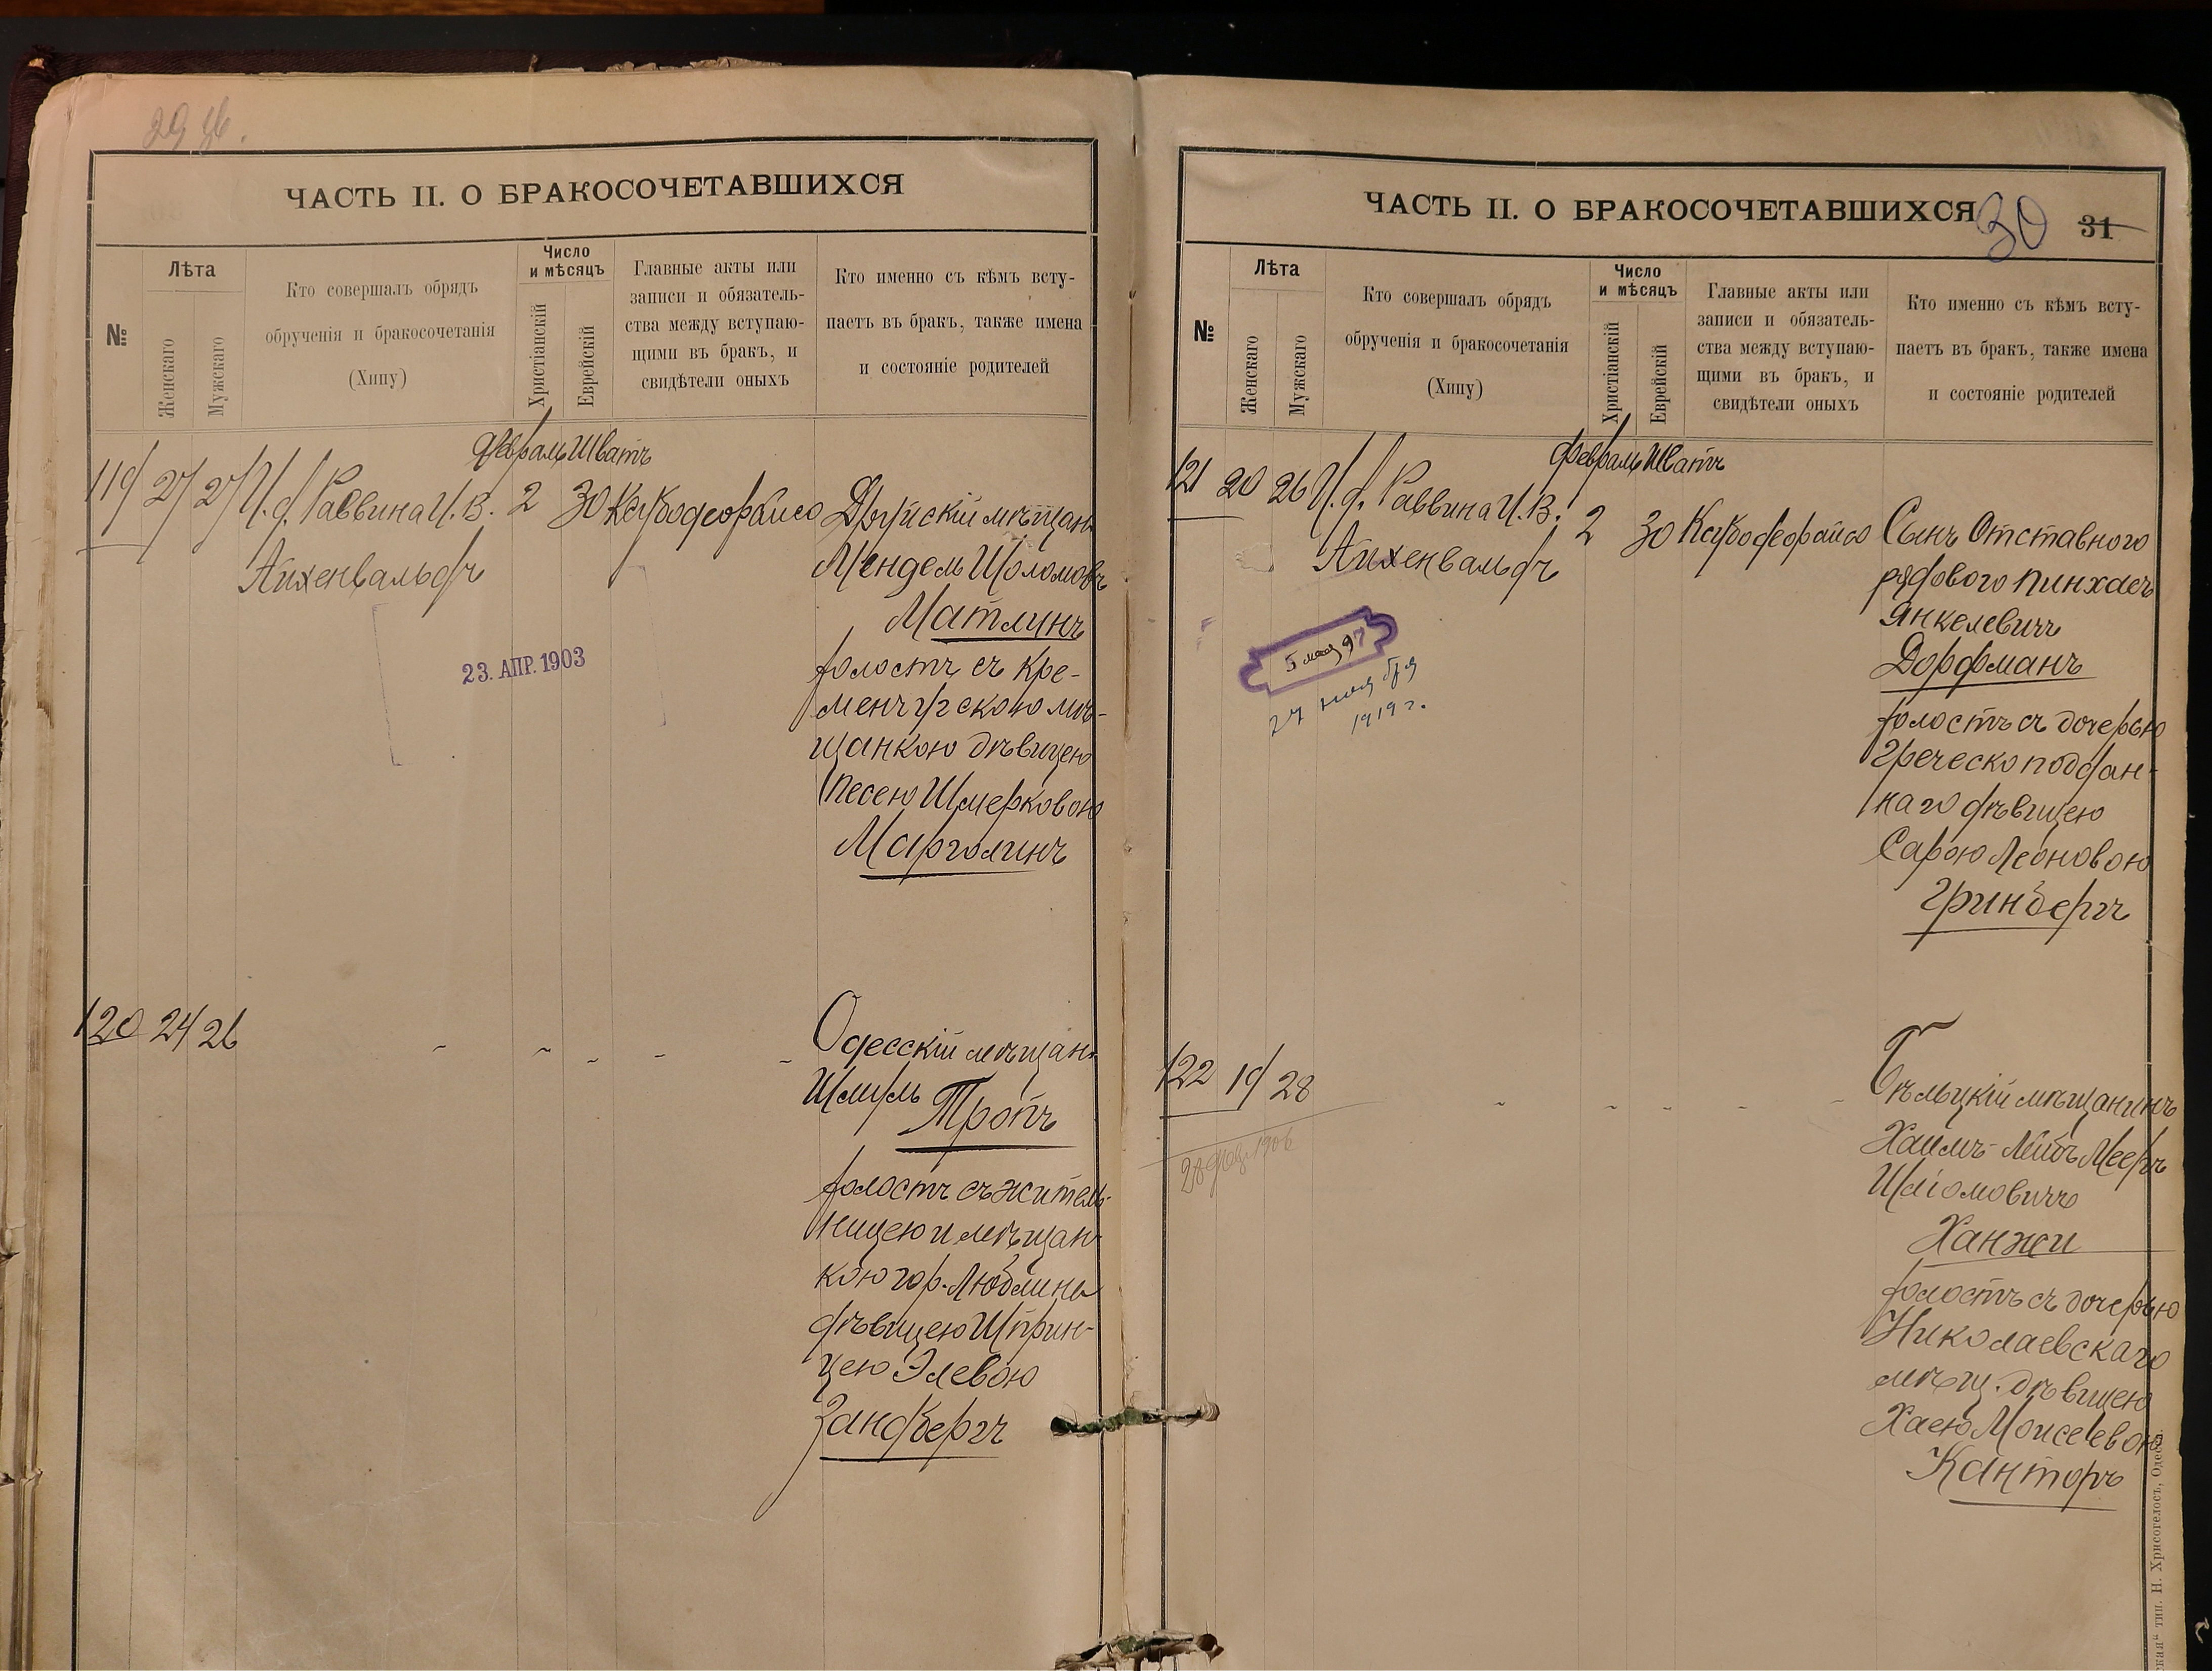 29 об.
ЧАСТЬ II. О БРАКОСОЧЕТАВШИХСЯ
№
Лѣта
Женскаго
Мужскаго
Кто совершалъ обрядъ
обрученія и бракосочетанія
(Хипу)
Число
и мѣсяцъ
Христіанскій
Еврейскій
Главные акты или
записи и обязатель-
ства между вступаю-
щими въ бракъ, и
свидѣтели оныхъ
Кто именно съ кѣмъ всту-
паетъ въ бракъ, также имена
и состояніе родителей
Февраль Шватъ
119 27 27 И. д. Раввина И. В. 2 30
Айхенвальдъ
23. АПР. 1903
мѣщан.
Мендель Шоломовъ
Матлинъ
холостъ съ Кре-
менчугскою мѣ-
щанкою дѣвицею
Песею Шмерковою
Марголинъ
120 24 26 ~ ~ ~ ~ ~
Одесскій мѣщан.
Шмуль
Тропъ
холостъ съ житель-
ницею и мѣщан-
кою гор. Люблина
дѣвицею Шприн-
цею Элевою
Зандбергъ
ЧАСТЬ II. О БРАКОСОЧЕТАВШИХСЯ
30 31
№
Лѣта
Женскаго
Мужскаго
Кто совершалъ обрядъ
обрученія и бракосочетанія
(Хипу)
Число
и мѣсяцъ
Христіанскій
Еврейскій
Главные акты или
записи и обязатель-
ства между вступаю-
щими въ бракъ, и
свидѣтели оныхъ
Кто именно съ кѣмъ всту-
паетъ въ бракъ, также имена
и состояніе родителей
Февраль Шватъ
121 20 26 И. д. Раввина И. В. 2 30
Айхенвальдъ
27 ноября
1919 г.
Сынъ Отставного
рядового Пинхасъ
Янкелевичъ
Дорфманъ
холостъ съ дочерью
Греческоподдан-
наго дѣвицею
Сарою Леоновою
Гринбергъ
122 19 28 ~ ~ ~ ~ ~
Бѣльцкій мѣщанинъ
Хаимъ-Лейбъ Мееръ
Шліомовичъ
Ханжи
холостъ съ дочерью
Николаевскаго
мѣщ. дѣвицею
Хаею Моисеевою
Канторъ
тип. Н. Хрисогелосъ, Одесса.